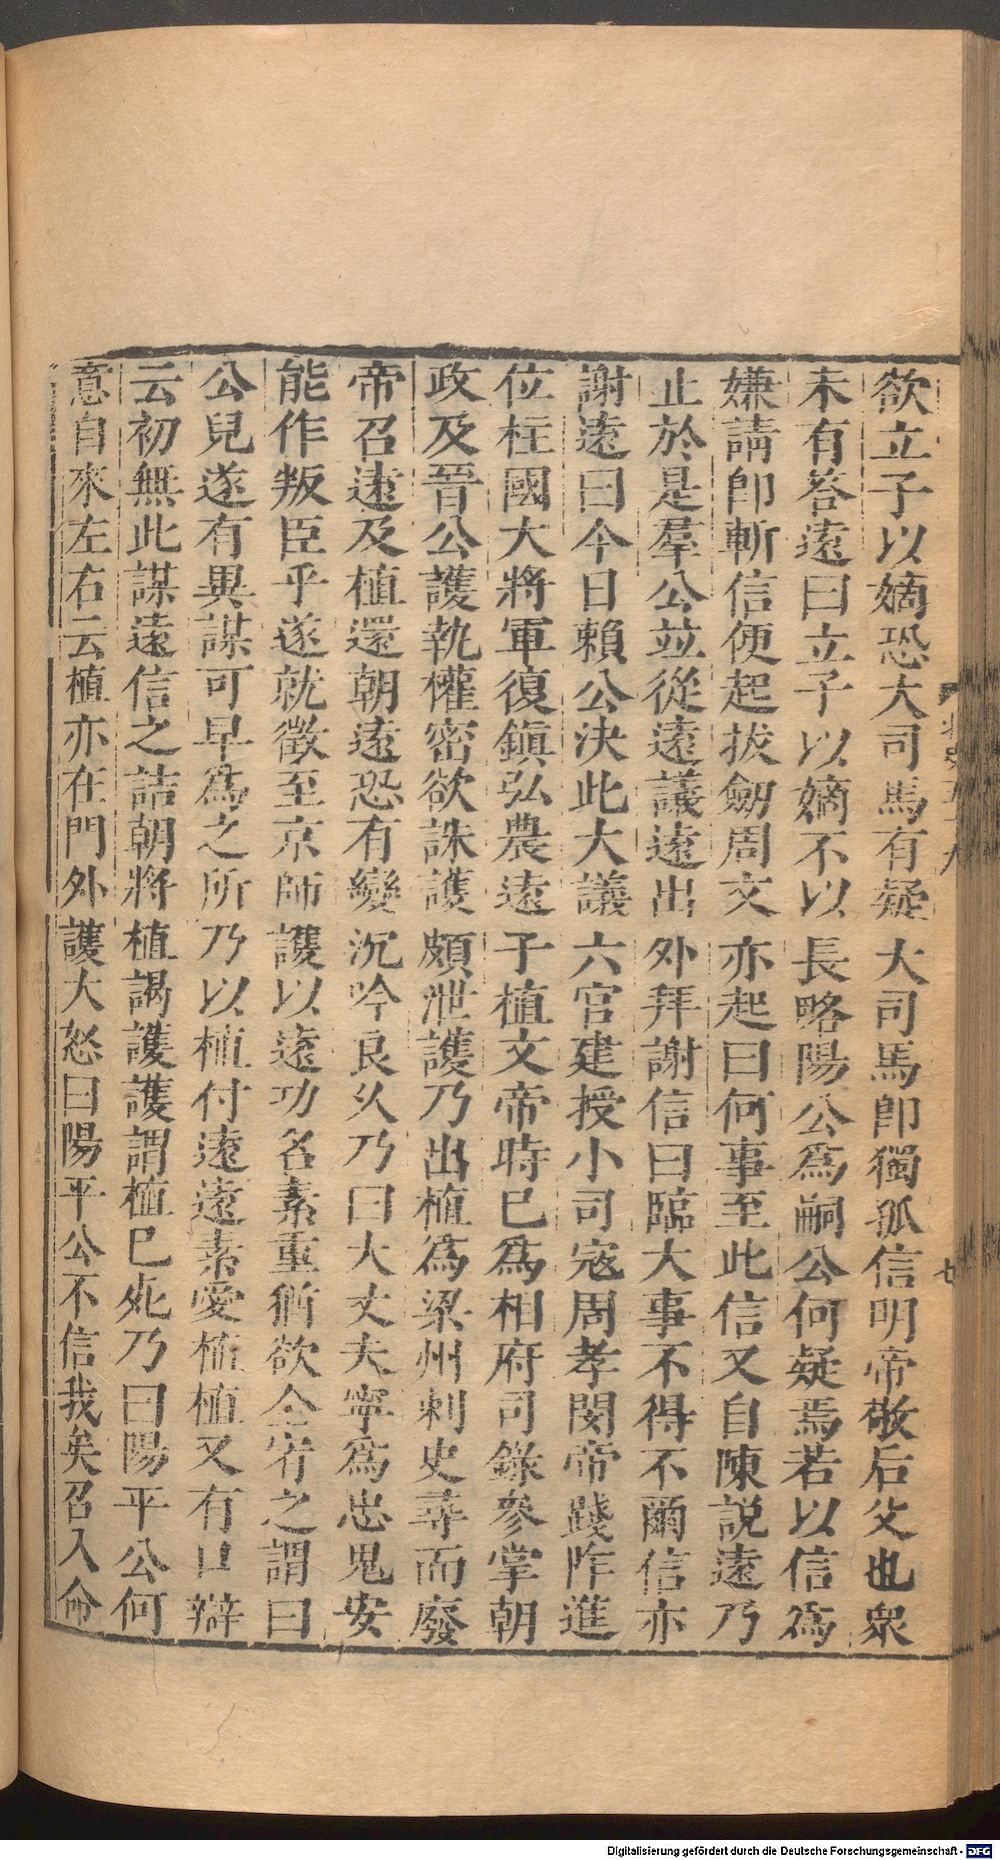 欲立子以嫡恐大司馬有疑大司馬卽獨孤信明帝敬后父也衆
未有荅遠曰立子以嫡不以長略陽公爲嗣公何疑焉若以信爲
嫌請卽斬信便起拔劒周文亦起曰何事至此信又自陳說遠乃
止於是羣公並從遠議遠出外拜謝信曰臨大事不得不爾信亦
謝遠曰今日賴公決此大議六官建授小司寇周孝閔帝踐阼進
位柱國大將軍復鎮弘農遠子植文帝時已爲相府司錄參掌朝
政及晉公護執權密欲誅護頗泄護乃出植爲梁州刺史尋而廢
帝召遠及植還朝遠恐有變沉吟良久乃曰大丈夫寧爲忠鬼安
能作叛臣乎遂就徵至京師護以遠功名素重猶欲全宥之謂曰
公兒遂有異謀可早爲之所乃以植付遠遠素愛植植又有口辯
云初無此謀遠信之詰朝將植謁護護謂植已死乃曰陽平公何
意自來左右云植亦在門外護大怒曰陽平公不信我矣召入命
七
Digitalisierung gefördert durch die Deutsche Forschungsgemeinschaft - DFG